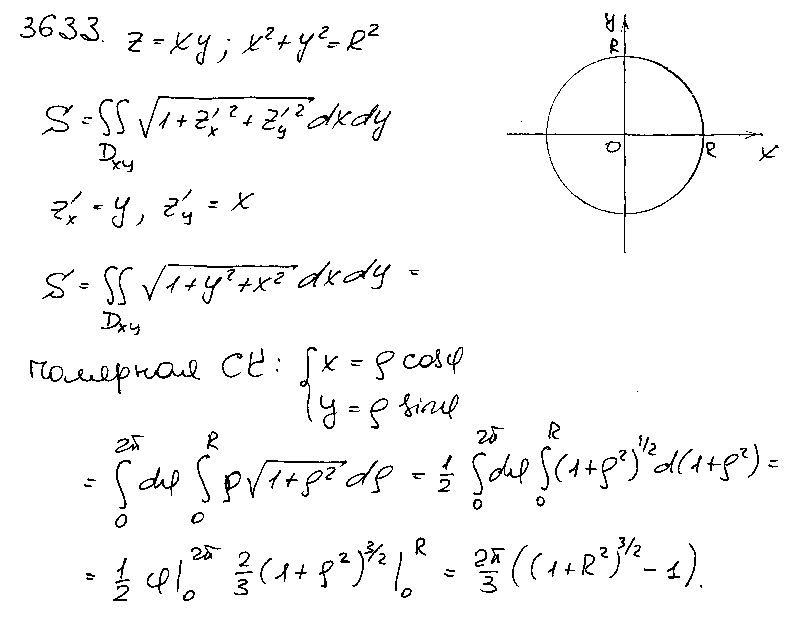 3633. z = xy ; x² + y² = R²
S = ∬_{D_{xy}} √(1 + z'ₓ² + z'_y²) dxdy
z'ₓ = y, z'_y = x
S = ∬_{D_{xy}} √(1 + y² + x²) dxdy =
полярная СК: { x = ρ cosφ
y = ρ sinφ
= ∫₀^{2π} dφ ∫₀^R ρ√(1+ρ²) dρ = 1/2 ∫₀^{2π} dφ ∫₀^R (1+ρ²)^{1/2} d(1+ρ²) =
= 1/2 φ|₀^{2π} 2/3 (1+ρ²)^{3/2}|₀^R = 2π/3 ((1+R²)^{3/2} − 1).
y
R
O
R
x